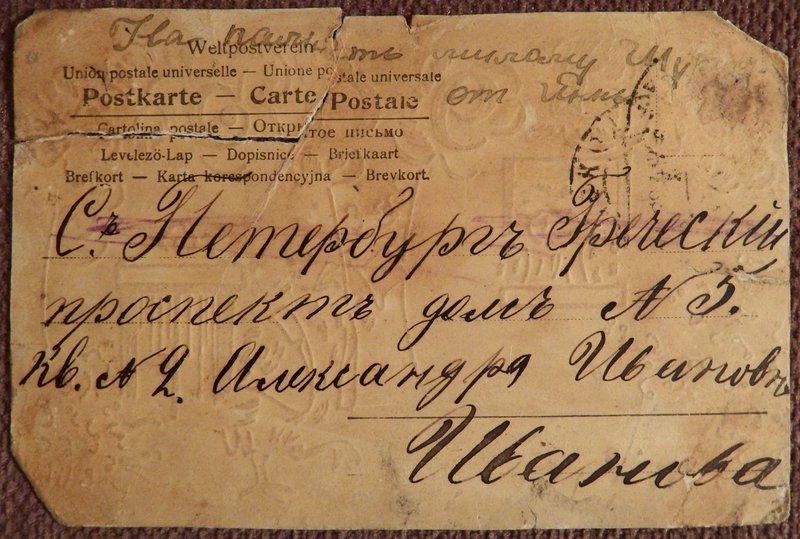 На память милому
Weltpostverein
Unione postale universelle — Unione postale universale
Postkarte — Carte Postale
от
Cartolina postale — Открытое письмо
Levelező-Lap — Dopisnice — Briefkaart
Brefkort — Karta korespondencyjna — Brevkort.
С.ъ Петербургъ Греческій
проспектъ домъ № 5.
кв. № 2. Александра Ивановн
Иванова